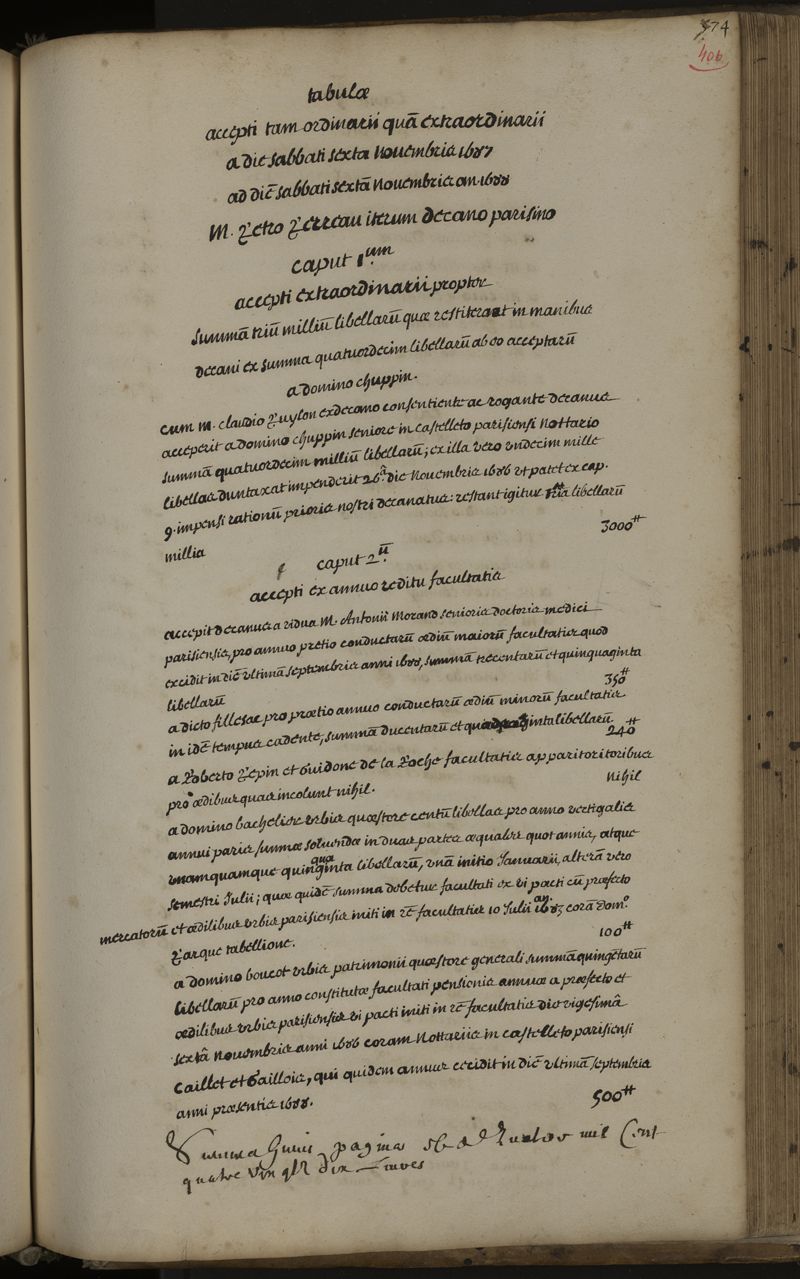 374
406
tabulæ
accepti tam ordinarii quā extraordinarii
a die sabbati sexta Novembris 1687
ad diē sabbati sextā Novembris an. 1688
M. Petro Perreau iterum Decano parisino
caput 1um
accepti extraordinarii propter
summā triū milliū libellarū quæ restiterant in manibus
decani ex summa quatuordecim libellarū ab eo acceptarū
a domino chuppin.
cum M. claudio Puylon exdecano consentiente ac rogante decanus
acceperit a domino chuppin seniore in castelleto parisiensi Nottario
summā quatuordecim milliū libellarū; ex illa vero undecim mille
libellas duntaxat impenderit 26ā die Novembris 1686 ut patet ex cap.
9. impensi rationū prioris nostri decanatus: restant igitur tria libellarū
millia
3000tt
caput 2ū
accepti ex annuo reditu facultatis
accepit decanus a vidua M. Antonii Morand senioris doctoris medici
parisiensis, pro annuo pretio conductarū ædiū maiorū facultatis quod
excidit in diē ultimā septembris anni 1688, summā trecentarū et quinquaginta
libellarū
350tt
a dicto fillesac pro prætio annuo conductarū ædiū minorū facultatis
in idē tempus cadente; summā ducentarū et quadraginta libellarū
240tt
a Roberto Pepin et Guidone de la Roche facultatis apparitoribus
pro ædibus quas incolunt nihil.
Nihil
a domino bachelier urbis quæstore centū libellas pro anno vectigalis
annui paris summæ solvendæ in duas partes æquales quot annis, atque
unamquamque quinquaginta libellarū, unā initio Januarii, alterā vero
semestri Julii; quæ quidē summa debetur facultati ex vi pacti cū præfecto
mercatorū et ædilibus urbis parisiensis initi in rē facultatis 10 Julii an. 1683 corā Domo.
Parque tabellione.
100tt
a domino boucot urbis patrimonii quæstore generali summā quingētarū
libellarū pro anno constitutæ facultati pensionis annuæ a præfecto et
ædilibus urbis parisiensis vi pacti initi in rē facultatis die vigesimā
sextā Novembris anni 1686 coram Nottariis in castelleto parisiensi
Caillet et Gaillois, qui quidem annus cecidit in diē ultimā septembris
anni præsentis 1688.
500tt
Summa huius paginæ mil Cent
quatre vin gt dix Livres